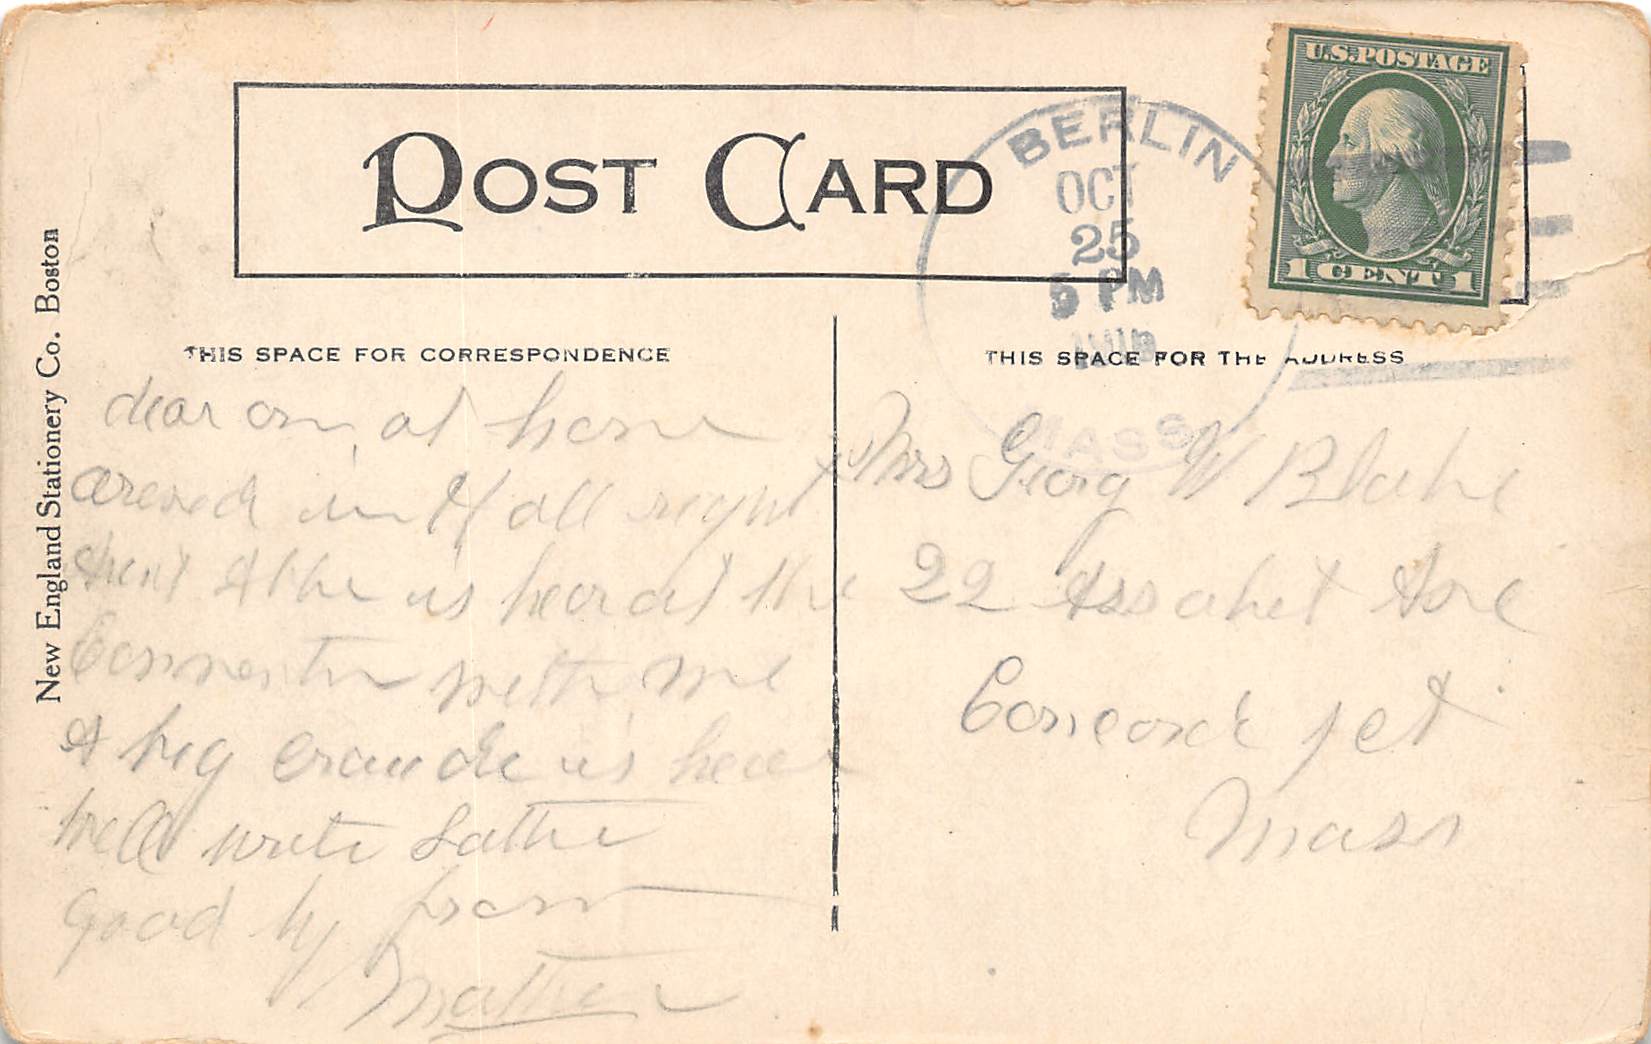 POST CARD
BERLIN
OCT
25
5 PM
MASS
U.S. POSTAGE
1 CENT 1
New England Stationery Co. Boston
THIS SPACE FOR CORRESPONDENCE
dear on at home
in all right
is hear at the
with me
A big is hear
well write
good by from
Mother
THIS SPACE FOR THE ADDRESS
Mrs Georg W Blake
22 Assabet Ave
Concord Jct
Mass